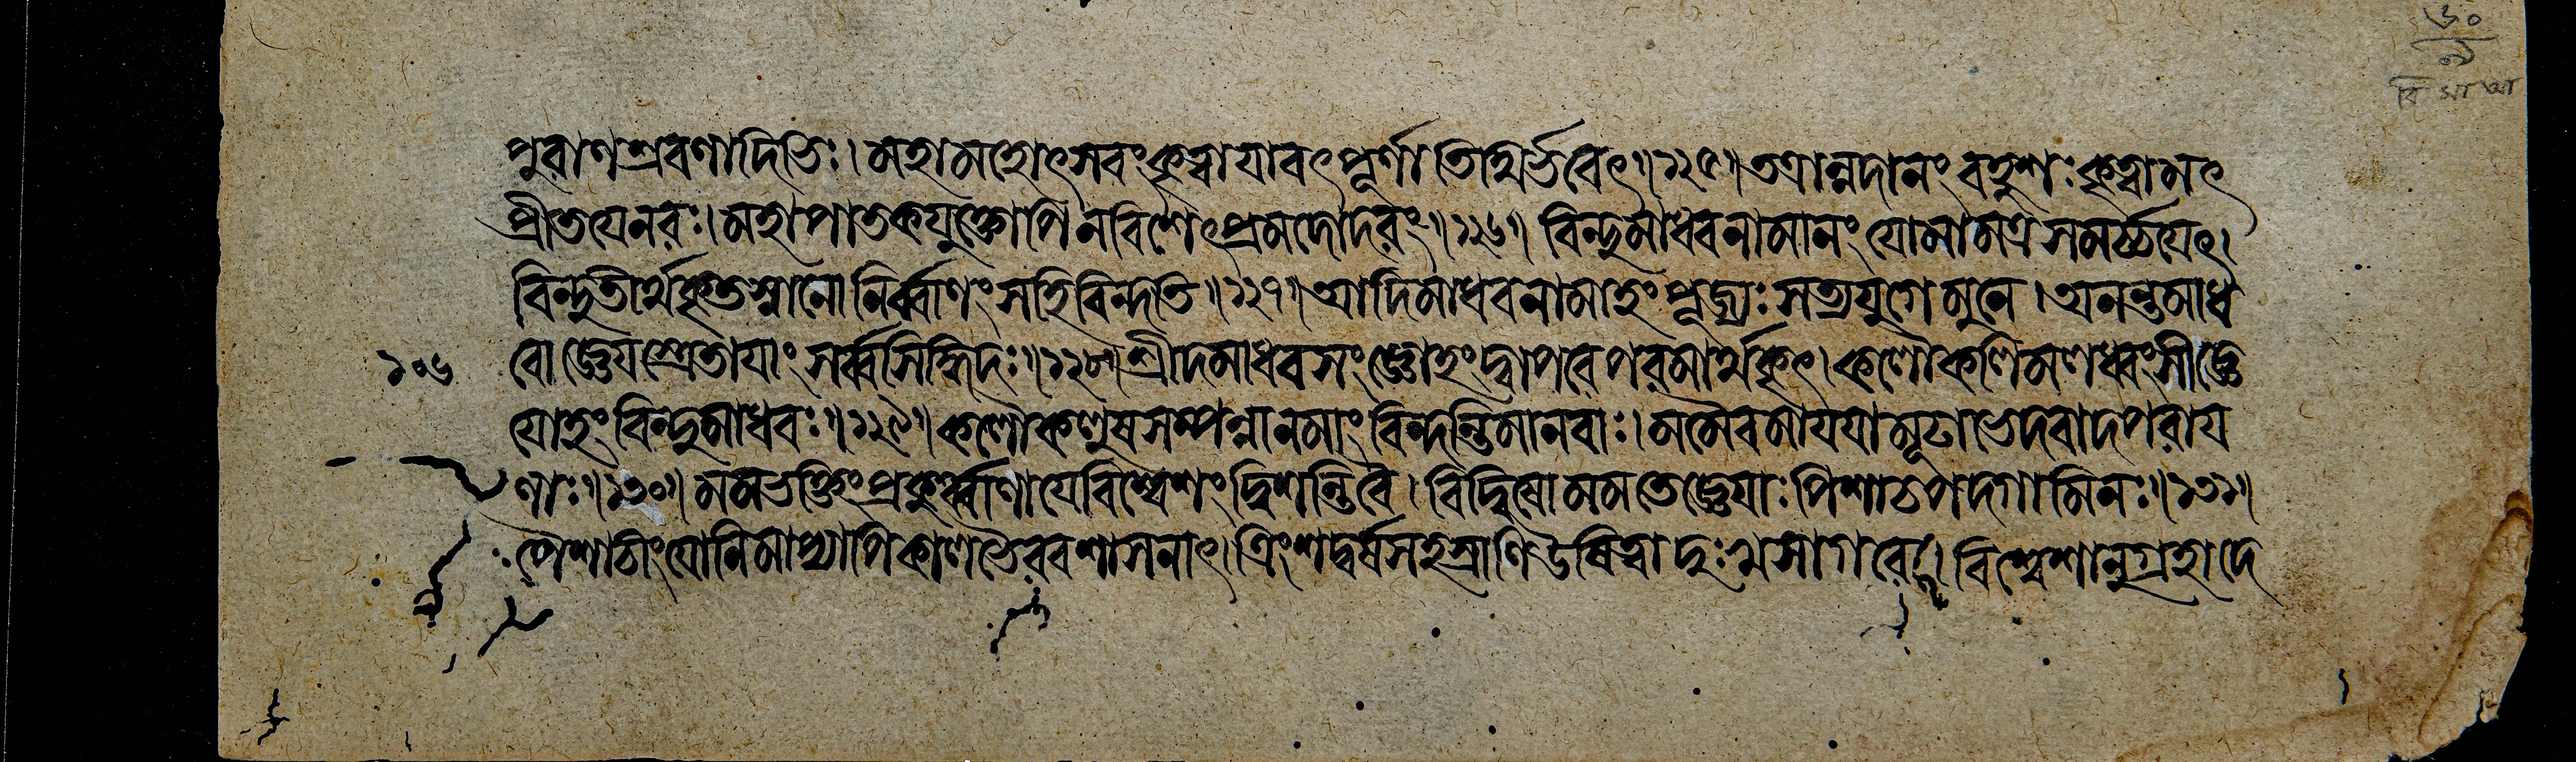 ৬০
৯
বি মা আ
পুরাণশ্রবণাদিভিঃ। মহামহোৎসবং কৃত্বা যাবৎ পূর্ণা তিথির্ভবেৎ॥১২৫॥ তত্রান্নদানং বহুশঃ কৃত্বা মৎ
প্রীতয়ে নরঃ। মহাপাতকযুক্তোপি ন বিশেৎ প্রমদোদরং॥১২৬॥ বিন্দুমাধবনামানং যো মামত্র সমর্চ্চয়েৎ।
বিন্দুতীর্থকৃতস্নানো নির্ব্বাণং স হি বিন্দতি॥১২৭॥ আদিমাধবনামাহং পূজ্যঃ সত্যযুগে মুনে। অনন্তমাধ
১০৬ বো জ্ঞেয়স্ত্রেতায়াং সর্ব্বসিদ্ধিদঃ॥১২৮॥ শ্রীদমাধবসংজ্ঞোহং দ্বাপরে পরমার্থকৃৎ। কলৌ কলিমলধ্বংসী জ্ঞে
য়োহং বিন্দুমাধবঃ॥১২৯॥ কলৌ কলুষসম্পন্না ন মাং বিন্দন্তি মানবাঃ। মমৈব মায়য়া মূঢা ভেদবাদপরায়
ণাঃ॥১৩০॥ মম ভক্তিং প্রকুর্ব্বাণা যে বিশ্বেশং দ্বিষন্তি বৈ। বিদ্বিষো মম তে জ্ঞেয়াঃ পিশাচপদগামিনঃ॥১৩১॥
পৈশাচীং যোনিমাপ্যাপি কালভৈরবশাসনাৎ। ত্রিংশদ্বর্ষসহস্রাণি উষিত্বা দুঃখসাগরে॥ বিশ্বেশানুগ্রহাদে